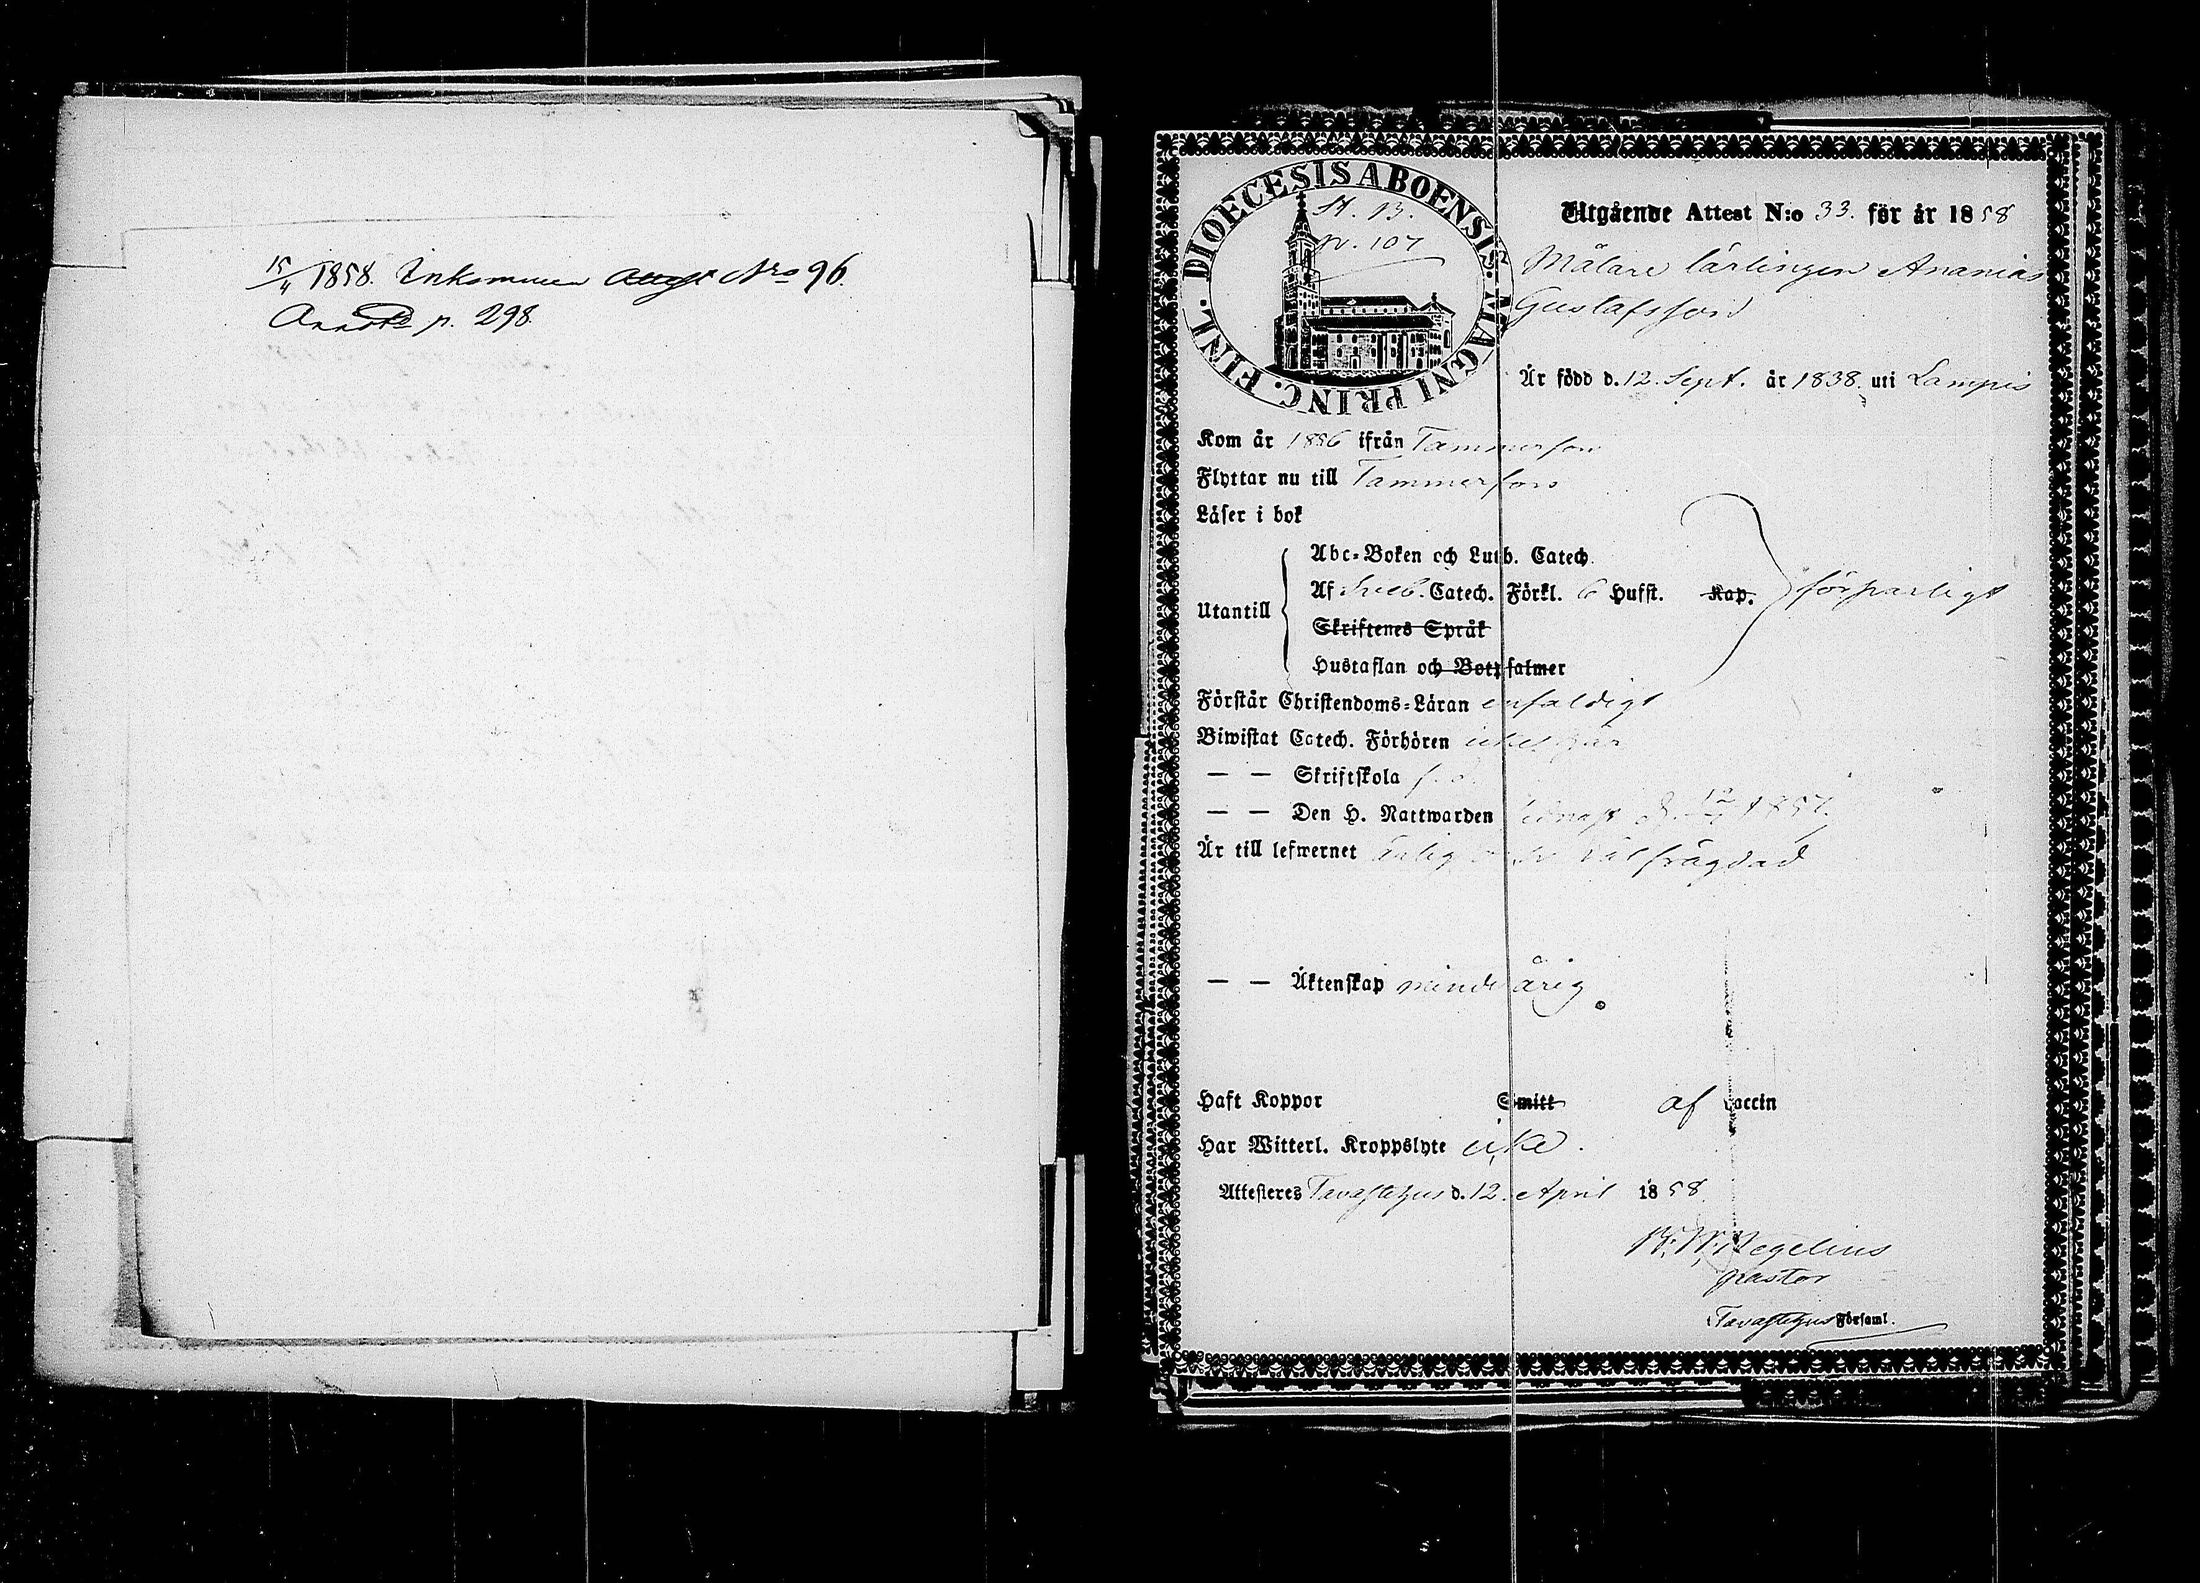 15/4 1858. Inkommen Attest Nro 96.
p. 298.
DIOECESIS ABOENSIS. MAGNI PRINC. FINL.
St. B.
p. 107
Utgående Attest N:o 33. för år 1858
Målare lärlingen Ananias
Gustafsson
Är född d. 12. Sept. år 1838. uti Lampis
Kom år 1856 ifrån Tammerfors
Flyttar nu till Tammerfors
Läser i bok
Abc-Boken och Luth. Catech.
Utantill
Af Sveb. Catech. Förkl. 6 Hufst. Kap. försvarligt
Skriftenes Språk
Hustaflan och Botpsalmer
Förstår Christendoms-Läran enfaldigt
Biwistat Catech. Förhören
— — Skriftskola
— — Den H. Nattwarden 1857.
Är till lefwernet ärlig och välfrägdad
— — Äktenskap minderårig
Haft Koppor Smitt af Vaccin
Har Witterl. Kroppslyte icke.
Attesteres Tavastehus d. 12. April 1858
Wegelius
pastor
Tavastehus Församl.